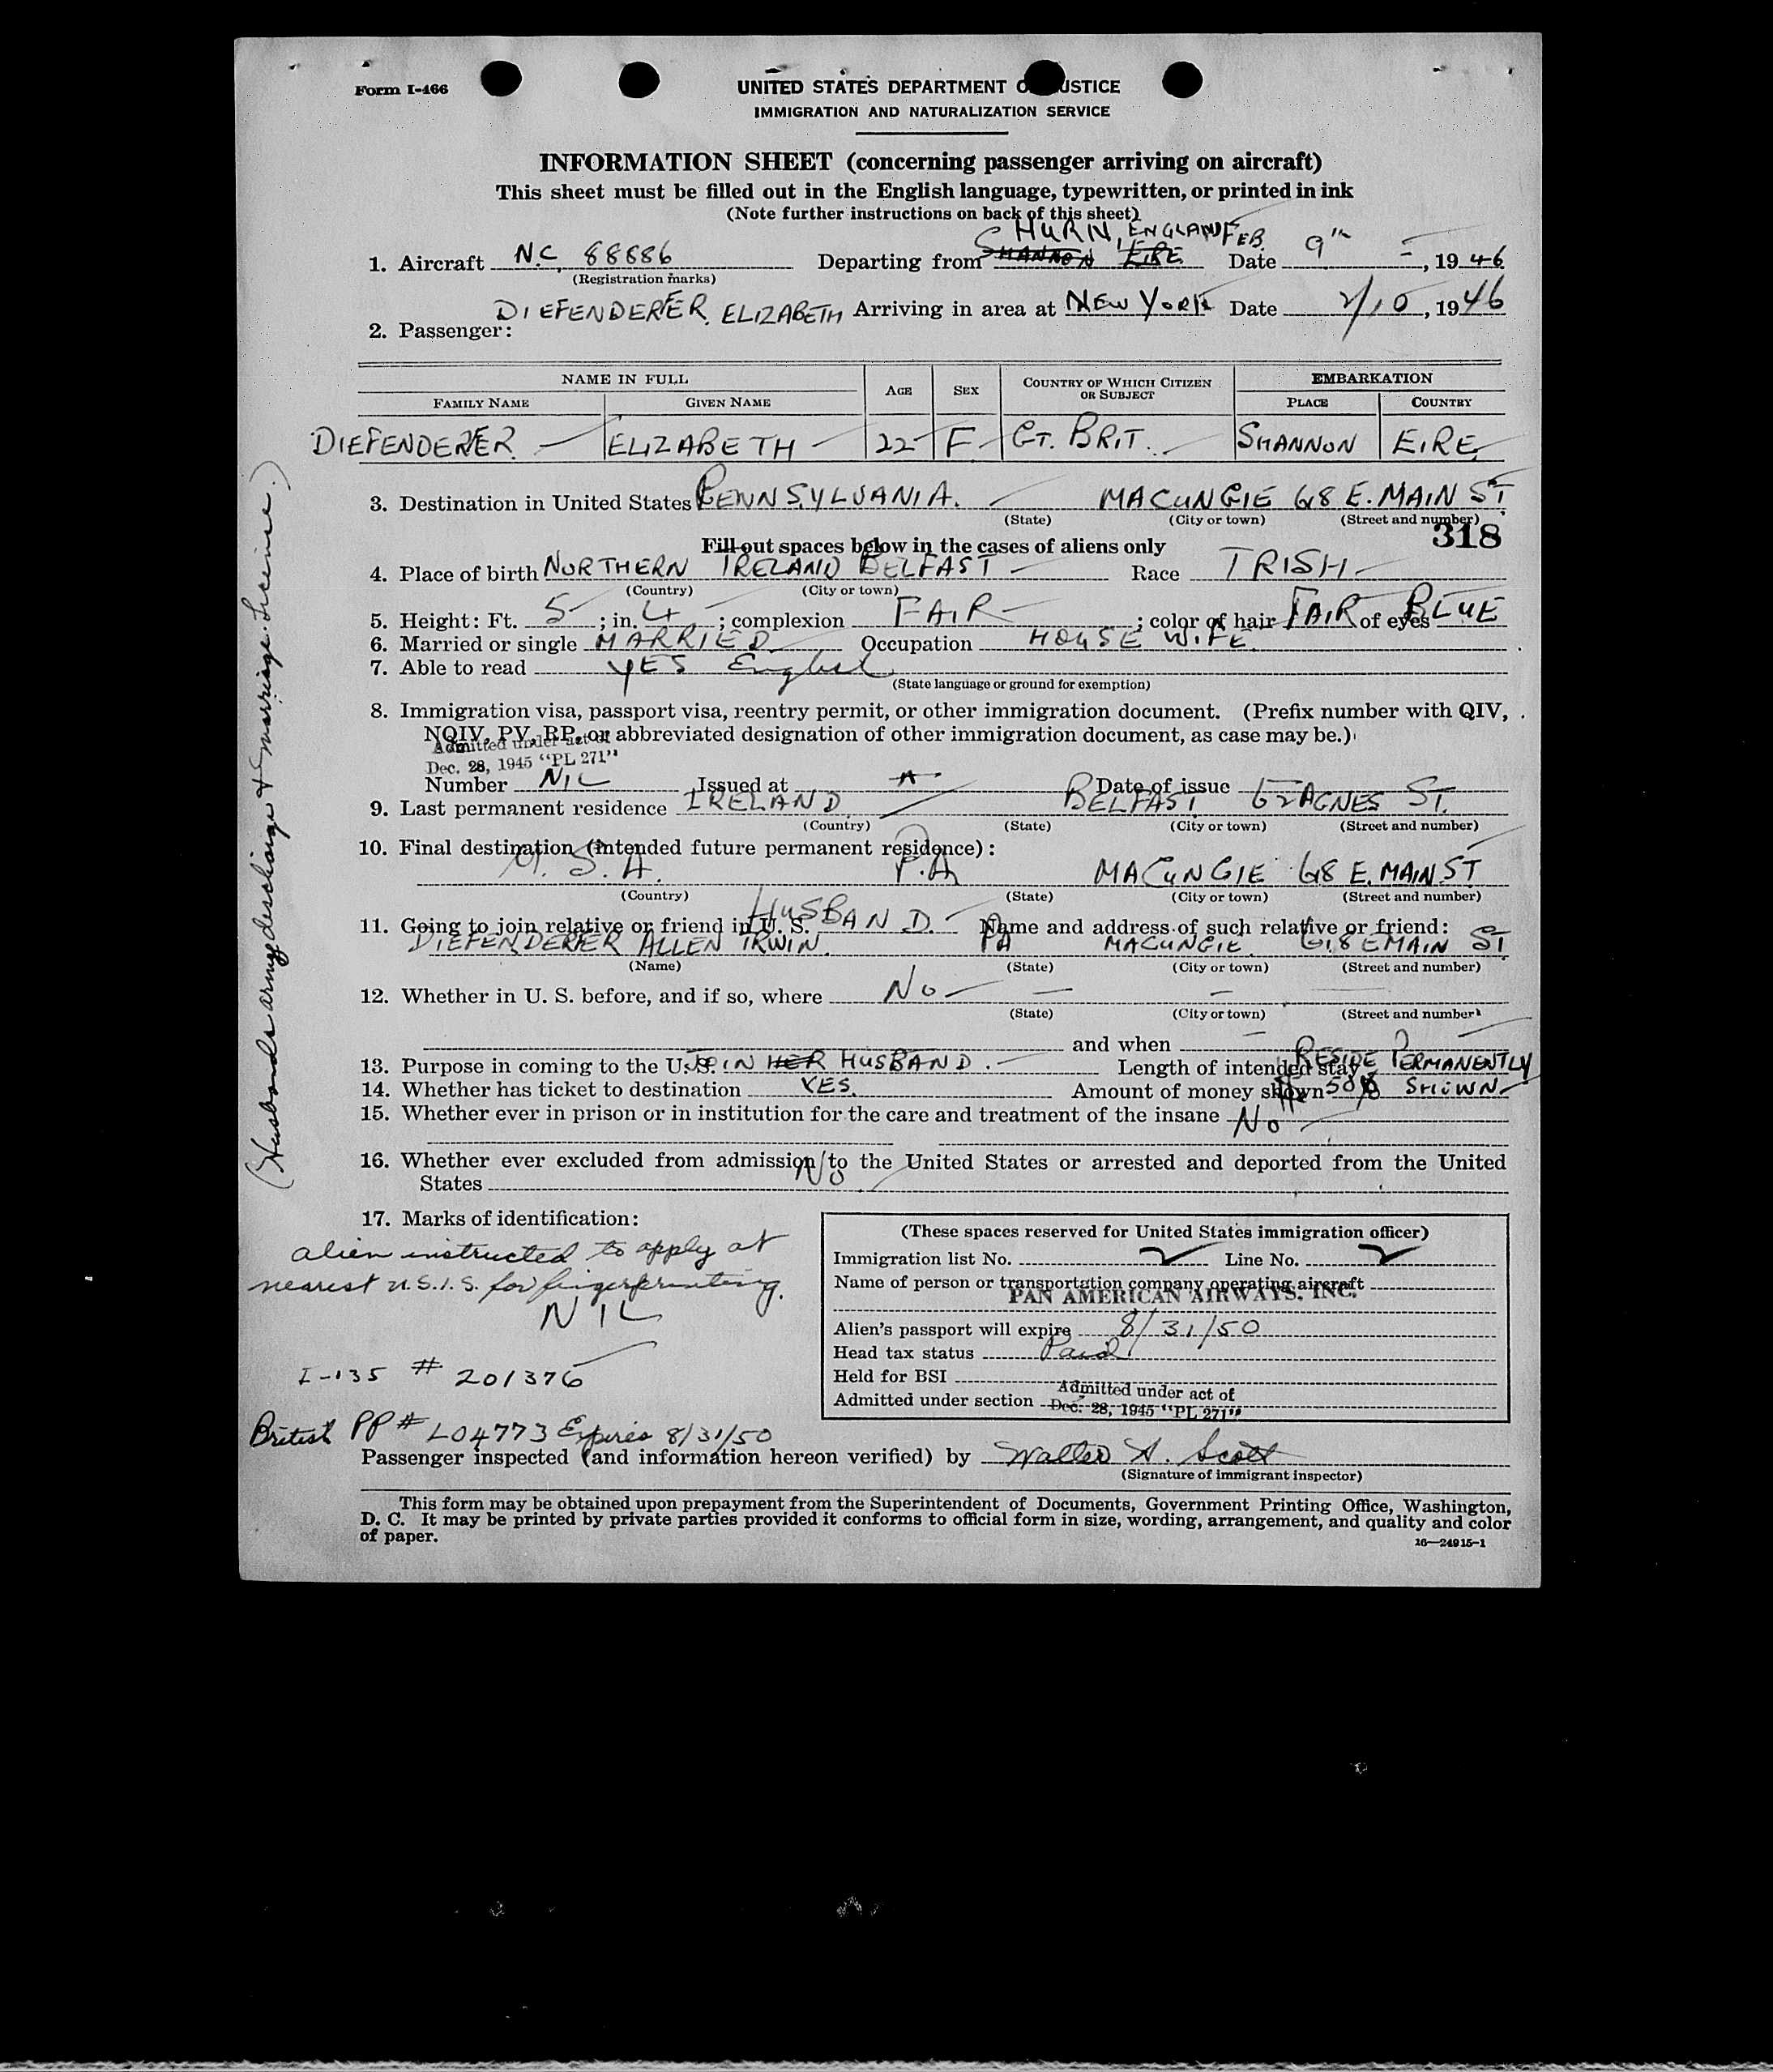 Form I-466
UNITED STATES DEPARTMENT OF JUSTICE
IMMIGRATION AND NATURALIZATION SERVICE
INFORMATION SHEET (concerning passenger arriving on aircraft)
This sheet must be filled out in the English language, typewritten, or printed in ink
(Note further instructions on back of this sheet)
HURN, ENGLAND
1. Aircraft N.C. 88886 Departing from SHANNON EIRE Date FEB. 9th, 1946
(Registration marks)
DIEFENDERFER, ELIZABETH Arriving in area at NEW YORK Date 2/10, 1946
2. Passenger:
NAME IN FULL AGE SEX COUNTRY OF WHICH CITIZEN OR SUBJECT EMBARKATION
FAMILY NAME GIVEN NAME PLACE COUNTRY
DIEFENDERFER ELIZABETH 22 F GT. BRIT. SHANNON EIRE
3. Destination in United States PENNSYLVANIA. MACUNGIE 68 E. MAIN ST
(State) (City or town) (Street and number)
318
Fill out spaces below in the cases of aliens only
4. Place of birth NORTHERN IRELAND BELFAST Race IRISH
(Country) (City or town)
5. Height: Ft. 5; in. 4; complexion FAIR; color of hair FAIR of eyes BLUE
6. Married or single MARRIED Occupation HOUSE WIFE
7. Able to read YES English
(State language or ground for exemption)
8. Immigration visa, passport visa, reentry permit, or other immigration document. (Prefix number with QIV,
NQIV, PV, RP, or abbreviated designation of other immigration document, as case may be.)
Admitted under act of
Dec. 28, 1945 "PL 271"
Number NIL Issued at Date of issue
9. Last permanent residence IRELAND BELFAST AGNES ST.
(Country) (State) (City or town) (Street and number)
10. Final destination (intended future permanent residence):
U.S.A. P.A MACUNGIE 68 E. MAIN ST
(Country) (State) (City or town) (Street and number)
11. Going to join relative or friend in U. S. HUSBAND. Name and address of such relative or friend:
DIEFENDERFER ALLEN IRWIN. PA MACUNGIE 68 E MAIN ST
(Name) (State) (City or town) (Street and number)
12. Whether in U. S. before, and if so, where No
(State) (City or town) (Street and number)
and when
13. Purpose in coming to the U. S. JOIN HER HUSBAND. Length of intended stay RESIDE PERMANENTLY
14. Whether has ticket to destination YES. Amount of money shown 50 SHOWN
15. Whether ever in prison or in institution for the care and treatment of the insane No
16. Whether ever excluded from admission to the United States or arrested and deported from the United
States No
17. Marks of identification:
alien instructed to apply at
nearest U.S.I.S. for fingerprinting.
NIL
I-135 # 201376
British PP # L04773 Expires 8/31/50
(These spaces reserved for United States immigration officer)
Immigration list No. 2 Line No. 2
Name of person or transportation company operating aircraft
PAN AMERICAN AIRWAYS, INC.
Alien's passport will expire 8/31/50
Head tax status Paid
Held for BSI
Admitted under section Admitted under act of
Dec. 28, 1945 "PL 271"
Passenger inspected (and information hereon verified) by Walter A. Scott
(Signature of immigrant inspector)
This form may be obtained upon prepayment from the Superintendent of Documents, Government Printing Office, Washington,
D. C. It may be printed by private parties provided it conforms to official form in size, wording, arrangement, and quality and color
of paper.
16—24915-1
(Husbands army discharge & marriage license.)